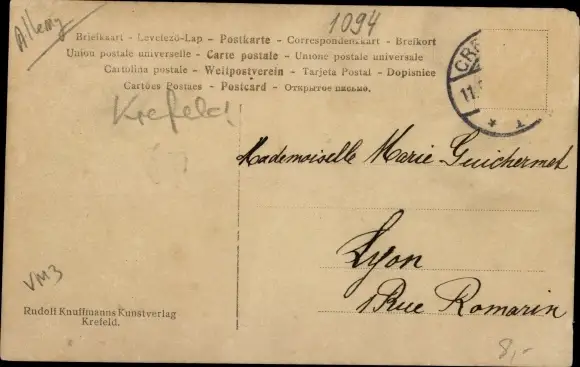 Allem
1094
Briefkaart - Levelező-Lap - Postkarte - Correspondenzkart - Brefkort
Union postale universelle - Carte postale - Unione postale universale
Cartolina postale - Weltpostverein - Tarjeta Postal - Dopisnice
Cartões Postaes - Postcard - Открытое письмо.
CRE
11.
* 1
Krefeld!
Mademoiselle Marie Guichermet
Lyon
1 Rue Romarin
VM3
Rudolf Kauffmanns Kunstverlag
Krefeld.
8,-